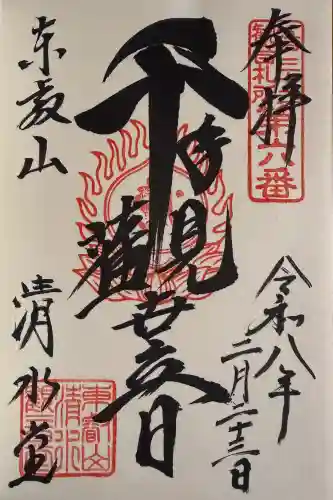 奉拝
札所第六番
令和八年
二月二十三日
千手観世音
東叡山
清水堂
東叡山
清水